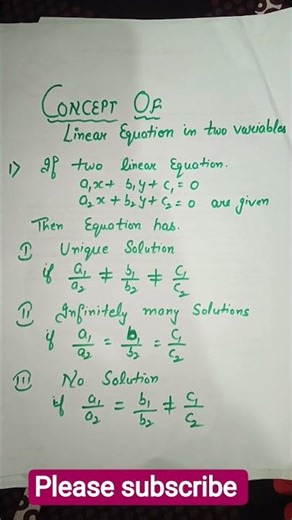 CONCEPT OF
Linear Equation in two variables
1) If two linear Equation.
a₁x + b₁y + c₁ = 0
a₂x + b₂y + c₂ = 0 are given
Then Equation has.
① Unique Solution
if a₁/a₂ ≠ b₁/b₂ ≠ c₁/c₂
② Infinitely many Solutions
if a₁/a₂ = b₁/b₂ = c₁/c₂
③ No Solution
if a₁/a₂ = b₁/b₂ ≠ c₁/c₂
Please subscribe